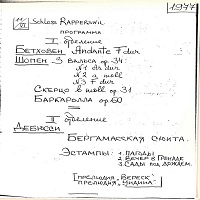 1977
11/VI Schloss RAPPERSWIL
ПРОГРАММА
I отделение
БЕТХОВЕН Andante F dur
ШОПЕН 3 ВАЛЬСА op. 34:
№1 As dur
№2 a moll
№3 F dur
СКЕРЦО h moll op. 31
БАРКАРОЛЛА op 60
II отделение
ДЕБЮССИ
БЕРГАМАССКАЯ СЮИТА.
ЭСТАМПЫ: 1. ПАГОДЫ
2. ВЕЧЕР В ГРЕНАДЕ
3. САДЫ ПОД ДОЖДЕМ.
ПРЕЛЮДИЯ „ВЕРЕСК"
ПРЕЛЮДИЯ „УНДИНА"